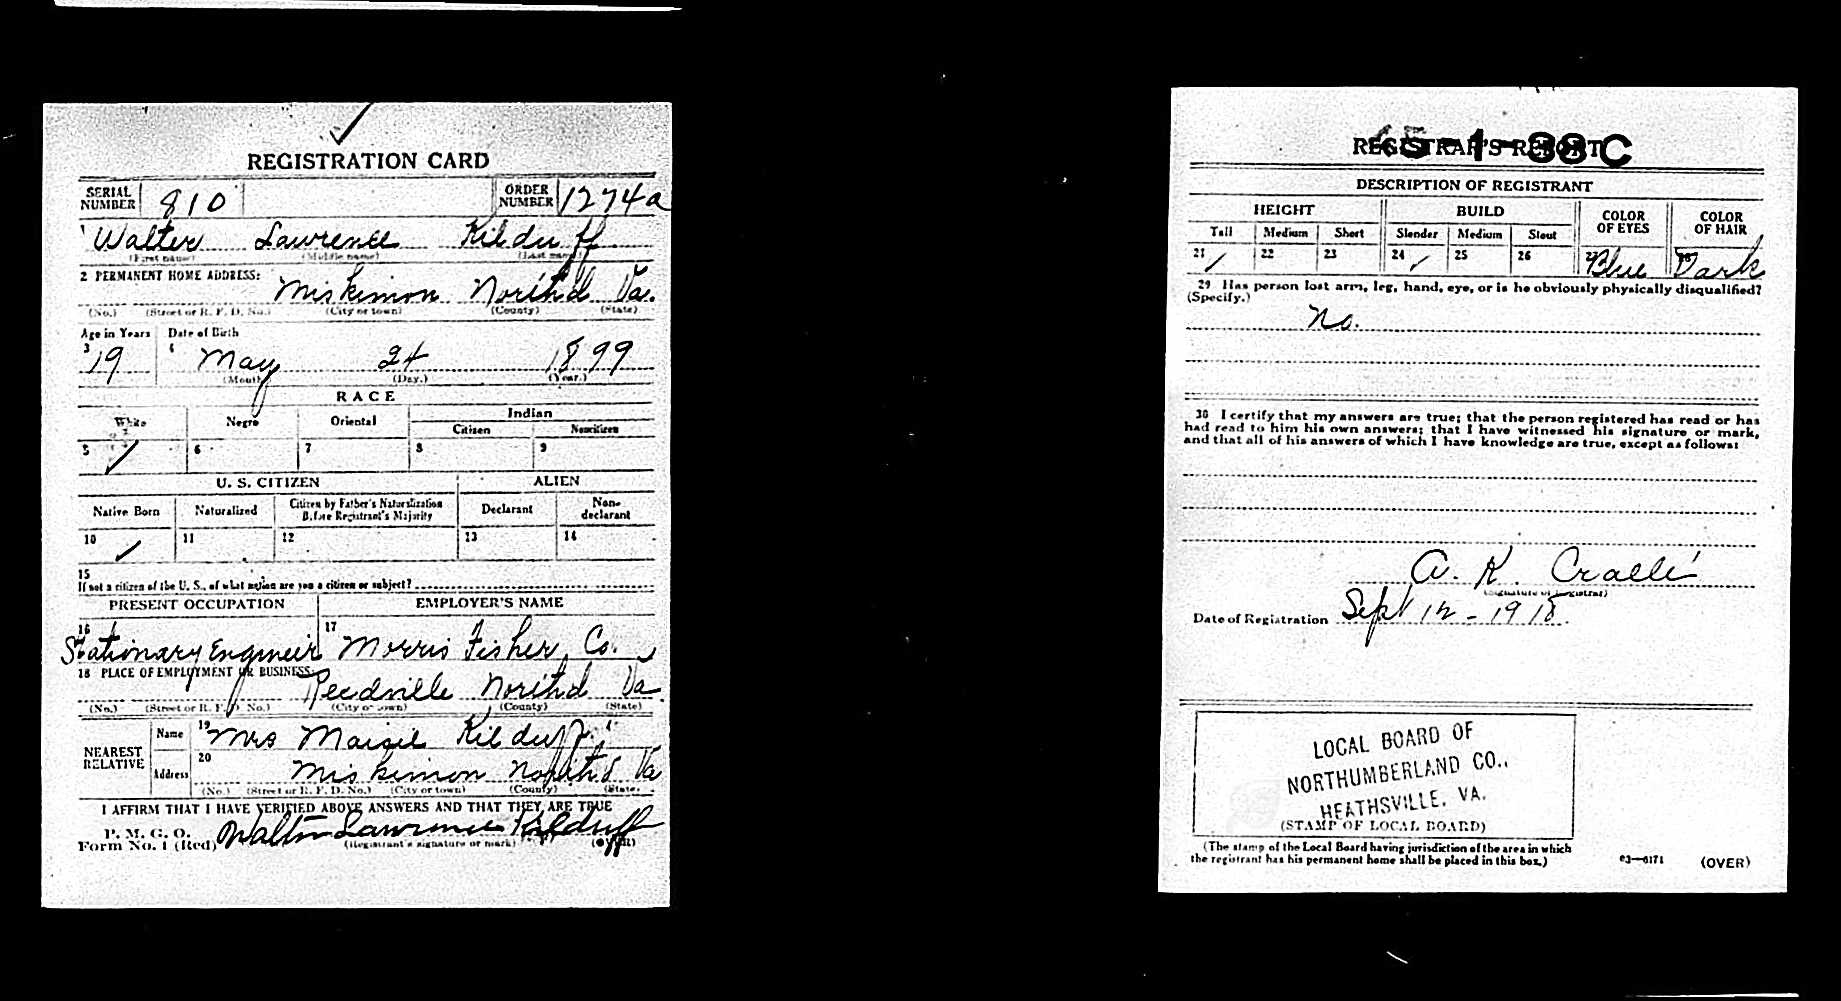 REGISTRATION CARD
SERIAL NUMBER 810 ORDER NUMBER 1274a
1 Walter Lawrence Kilduff
(First name) (Middle name) (Last name)
2 PERMANENT HOME ADDRESS:
Miskimon North'd Va.
(No.) (Street or R. F. D. No.) (City or town) (County) (State)
Age in Years Date of Birth
3 19 4 May 24 1899
(Month) (Day.) (Year.)
RACE
White Negro Oriental Indian
Citizen Noncitizen
5 ✓ 6 7 8 9
U. S. CITIZEN ALIEN
Native Born Naturalized Citizen by Father's Naturalization Before Registrant's Majority Declarant Non-declarant
10 ✓ 11 12 13 14
15
If not a citizen of the U. S., of what nation are you a citizen or subject?
PRESENT OCCUPATION EMPLOYER'S NAME
16 Stationary Engineer 17 Morris Fisher Co.
18 PLACE OF EMPLOYMENT OR BUSINESS:
Reedville North'd Va
(No.) (Street or R. F. D. No.) (City or town) (County) (State)
NEAREST RELATIVE
Name 19 Mrs Maisie Kilduff
Address 20 Miskimon North'd Va
(No.) (Street or R. F. D. No.) (City or town) (County) (State)
I AFFIRM THAT I HAVE VERIFIED ABOVE ANSWERS AND THAT THEY ARE TRUE
P. M. G. O.
Form No. 1 (Red) Walter Lawrence Kilduff
(Registrant's signature or mark) (OVER)
REGISTRAR'S REPORT
45-1-38 C
DESCRIPTION OF REGISTRANT
HEIGHT BUILD COLOR OF EYES COLOR OF HAIR
Tall Medium Short Slender Medium Stout
21 ✓ 22 23 24 ✓ 25 26 27 Blue 28 Dark
29 Has person lost arm, leg, hand, eye, or is he obviously physically disqualified?
(Specify.)
No.
30 I certify that my answers are true; that the person registered has read or has
had read to him his own answers; that I have witnessed his signature or mark,
and that all of his answers of which I have knowledge are true, except as follows:
A. K. Crallé
(Signature of Registrar)
Date of Registration Sept 12 - 1918.
LOCAL BOARD OF
NORTHUMBERLAND CO.,
HEATHSVILLE, VA.
(STAMP OF LOCAL BOARD)
(The stamp of the Local Board having jurisdiction of the area in which
the registrant has his permanent home shall be placed in this box.)
03—6171 (OVER)